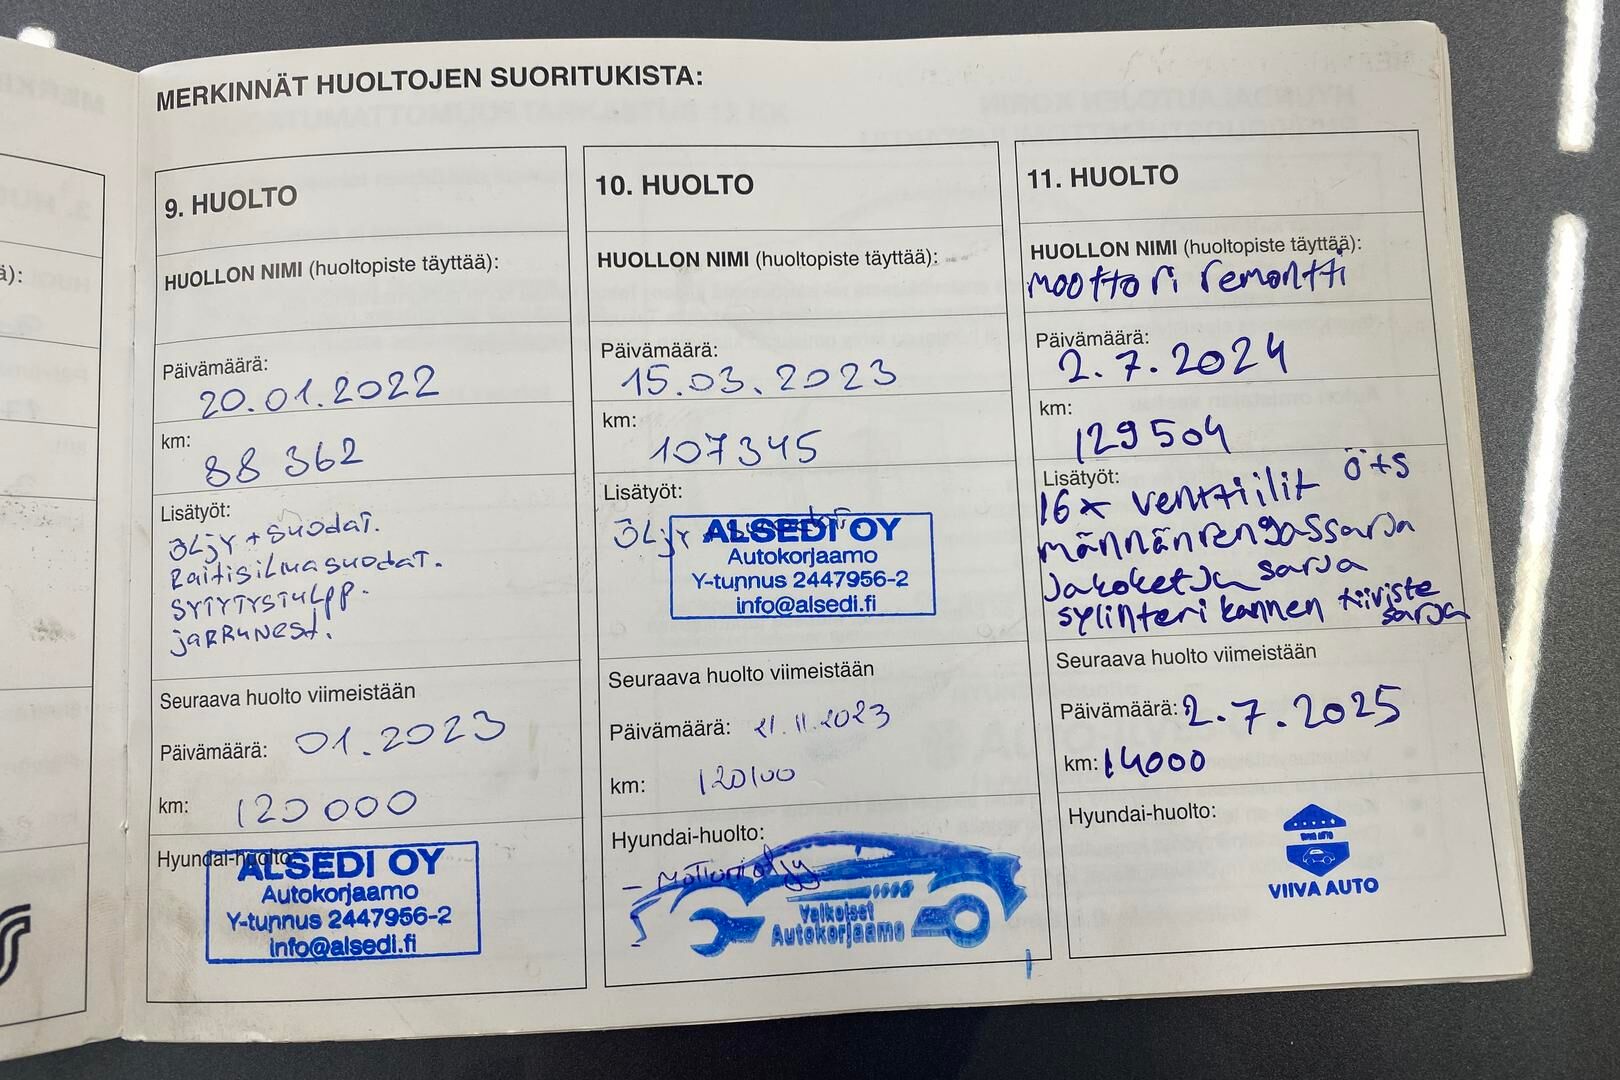 MERKINNÄT HUOLTOJEN SUORITUKISTA:
9. HUOLTO
HUOLLON NIMI (huoltopiste täyttää):
Päivämäärä:
20.01.2022
km:
88 362
Lisätyöt:
ÖLjY + SUODAT.
RaitisiLmasuodaT.
SYTYTYSTULPP.
jaRRUNEST.
Seuraava huolto viimeistään
Päivämäärä: 01.2023
km: 120 000
Hyundai-huolto:
ALSEDI OY
Autokorjaamo
Y-tunnus 2447956-2
info@alsedi.fi
10. HUOLTO
HUOLLON NIMI (huoltopiste täyttää):
Päivämäärä:
15.03.2023
km:
107345
Lisätyöt:
ÖLjY
ALSEDI OY
Autokorjaamo
Y-tunnus 2447956-2
info@alsedi.fi
Seuraava huolto viimeistään
Päivämäärä: 21.11.2023
km: 120100
Hyundai-huolto:
Valkoiset
Autokorjaamo
11. HUOLTO
HUOLLON NIMI (huoltopiste täyttää):
moottori remontti
Päivämäärä:
2.7.2024
km:
129504
Lisätyöt: Ö+S
16x venttiilit
männänrengassarja
Jakoketju sarja
sylinteri kannen tiiviste
sarja
Seuraava huolto viimeistään
Päivämäärä: 2.7.2025
km: 14000
Hyundai-huolto:
VIIVA AUTO
ä):